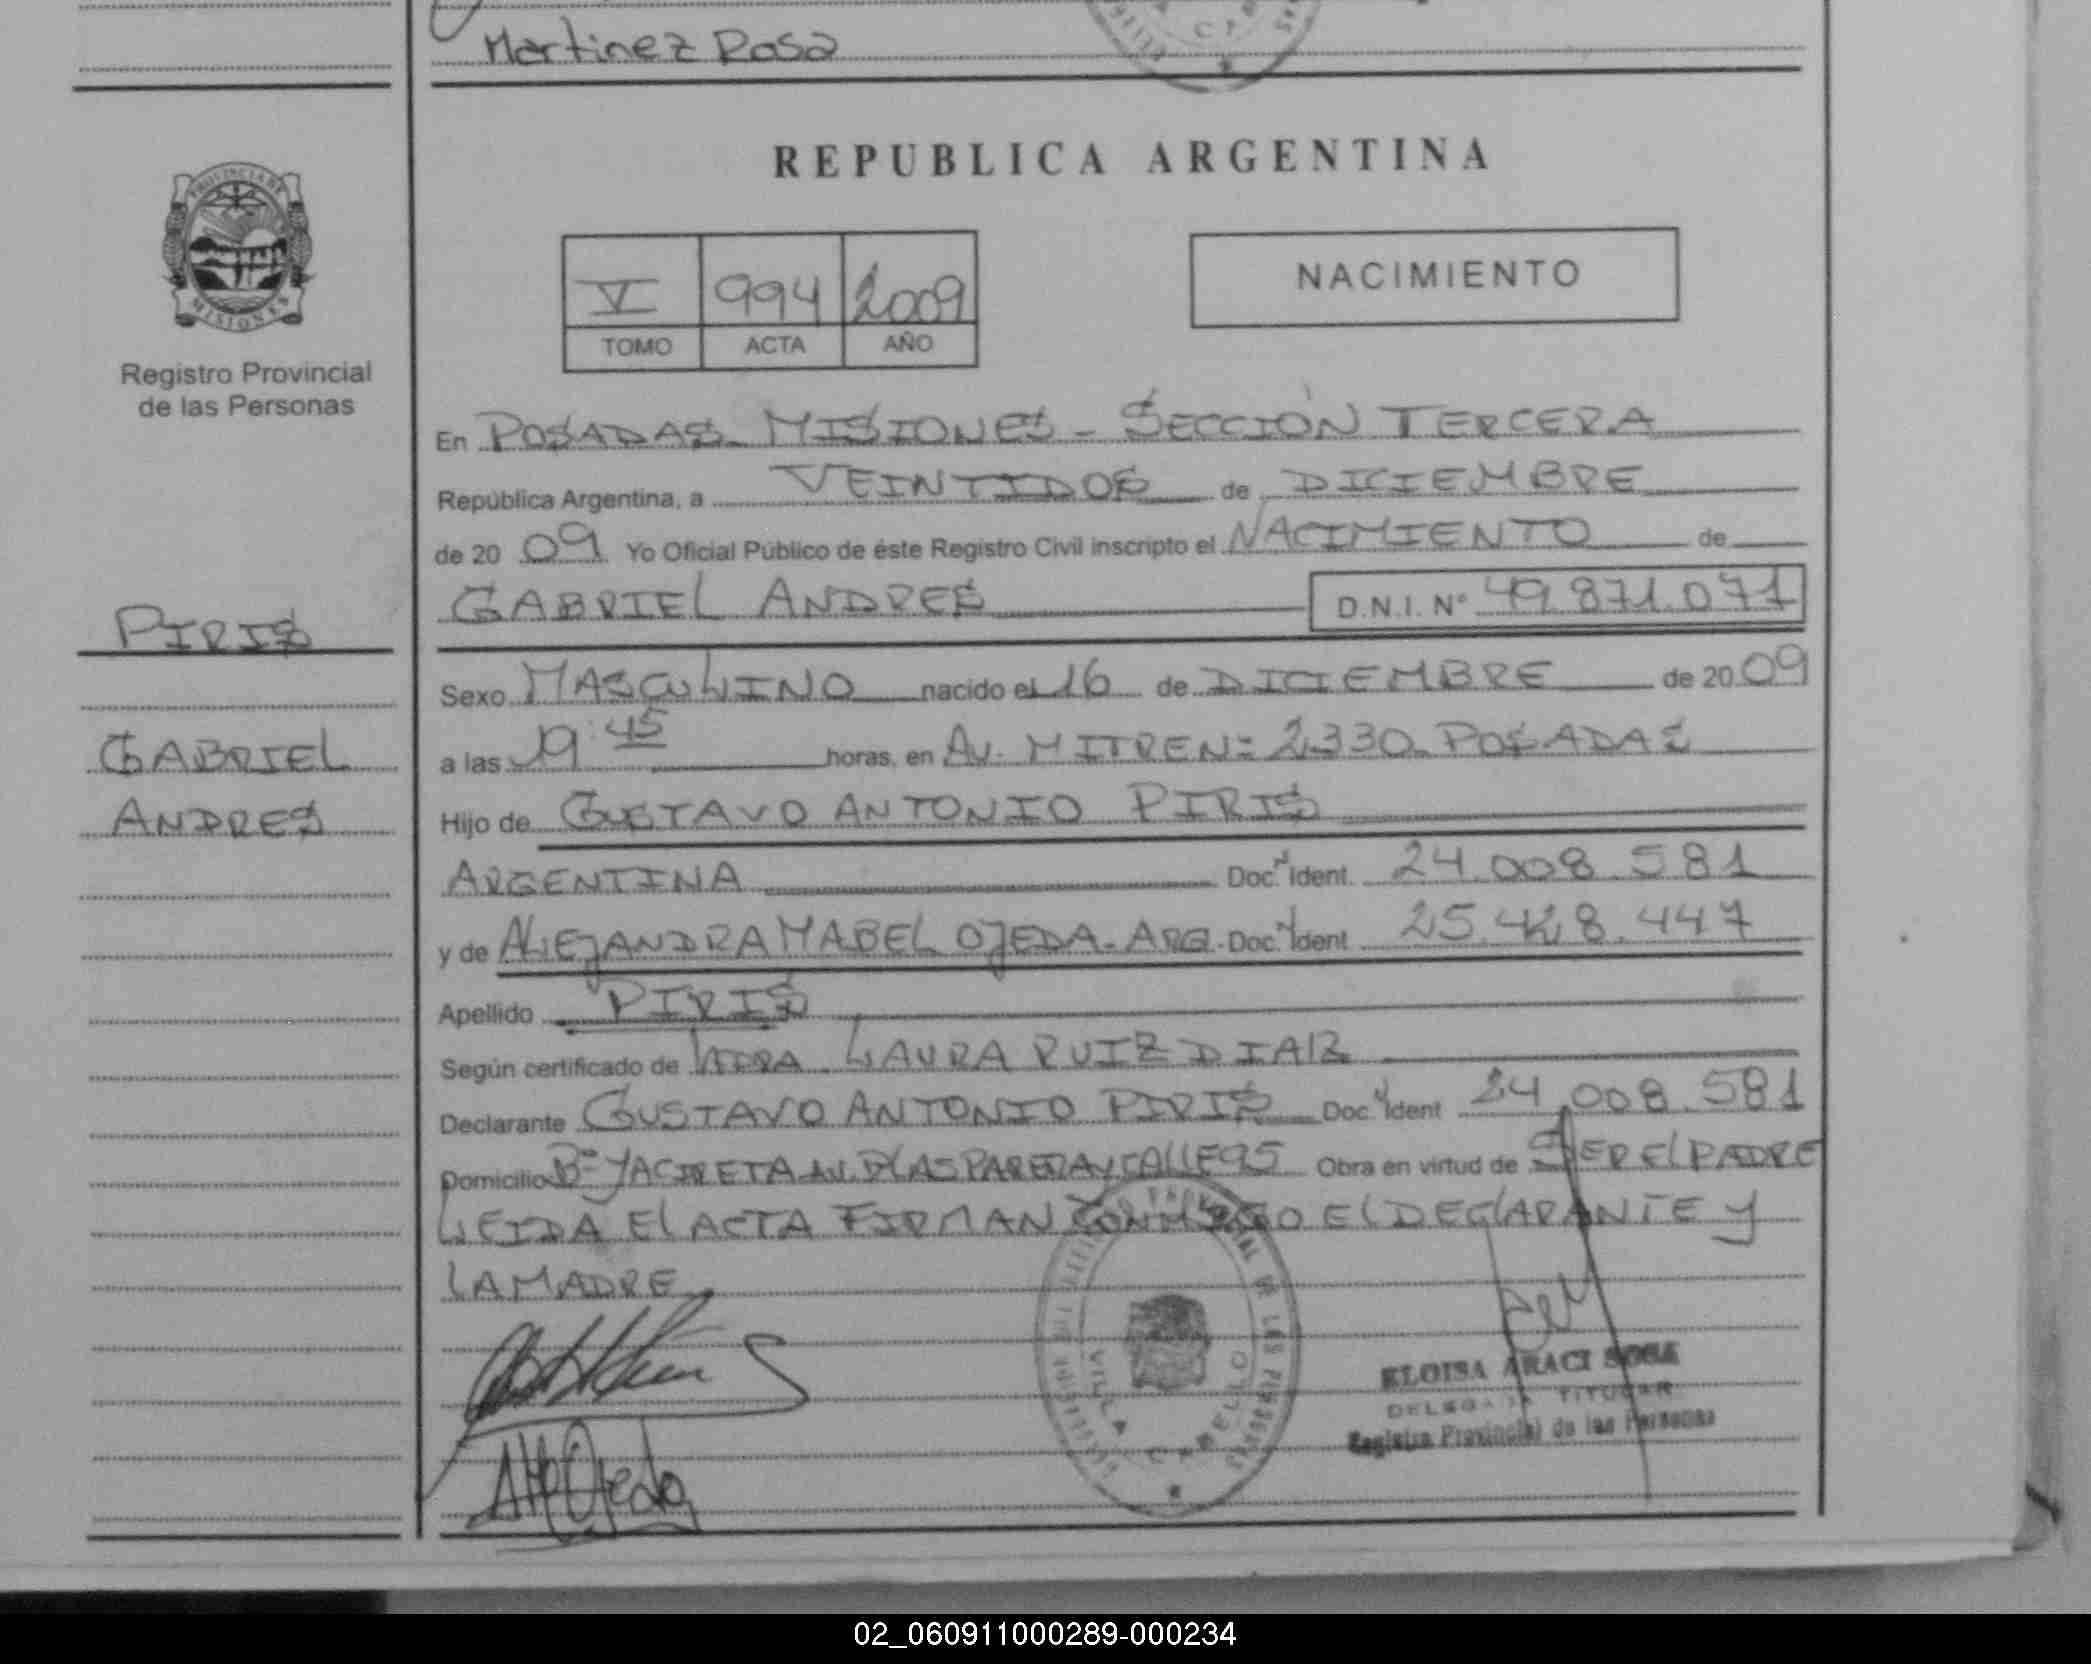 Martinez Rosa
REPUBLICA ARGENTINA
PROVINCIA DE
MISIONES
Registro Provincial
de las Personas
V 994 2009
TOMO ACTA AÑO
NACIMIENTO
En POSADAS MISIONES - SECCIÓN TERCERA
República Argentina, a VEINTIDOS de DICIEMBRE
de 20 09 Yo Oficial Público de éste Registro Civil inscripto el NACIMIENTO de
GABRIEL ANDRES D.N.I. Nº 49.871.071
PIRIS
GABRIEL
ANDRES
Sexo MASCULINO nacido el 16 de DICIEMBRE de 20 09
a las 19:45 horas, en Av. MITRE Nº 2330 POSADAS
Hijo de GUSTAVO ANTONIO PIRIS
ARGENTINA Doc. Ident. 24.008.581
y de ALEJANDRA MABEL OJEDA - ARG. Doc. Ident. 25.428.447
Apellido PIRIS
Según certificado de LAURA RUIZ DIAZ
Declarante GUSTAVO ANTONIO PIRIS Doc. Ident 24.008.581
Domicilio Bº YACIRETA AV. BLAS PARERA Y CALLE 95 Obra en virtud de SER EL PADRE
LEIDA EL ACTA FIRMAN CONMIGO EL DECLARANTE Y
LA MADRE
VILLA CABELLO
ELOISA ARACI SOSA
DELEGADA TITULAR
Registro Provincial de las Personas
02_060911000289-000234